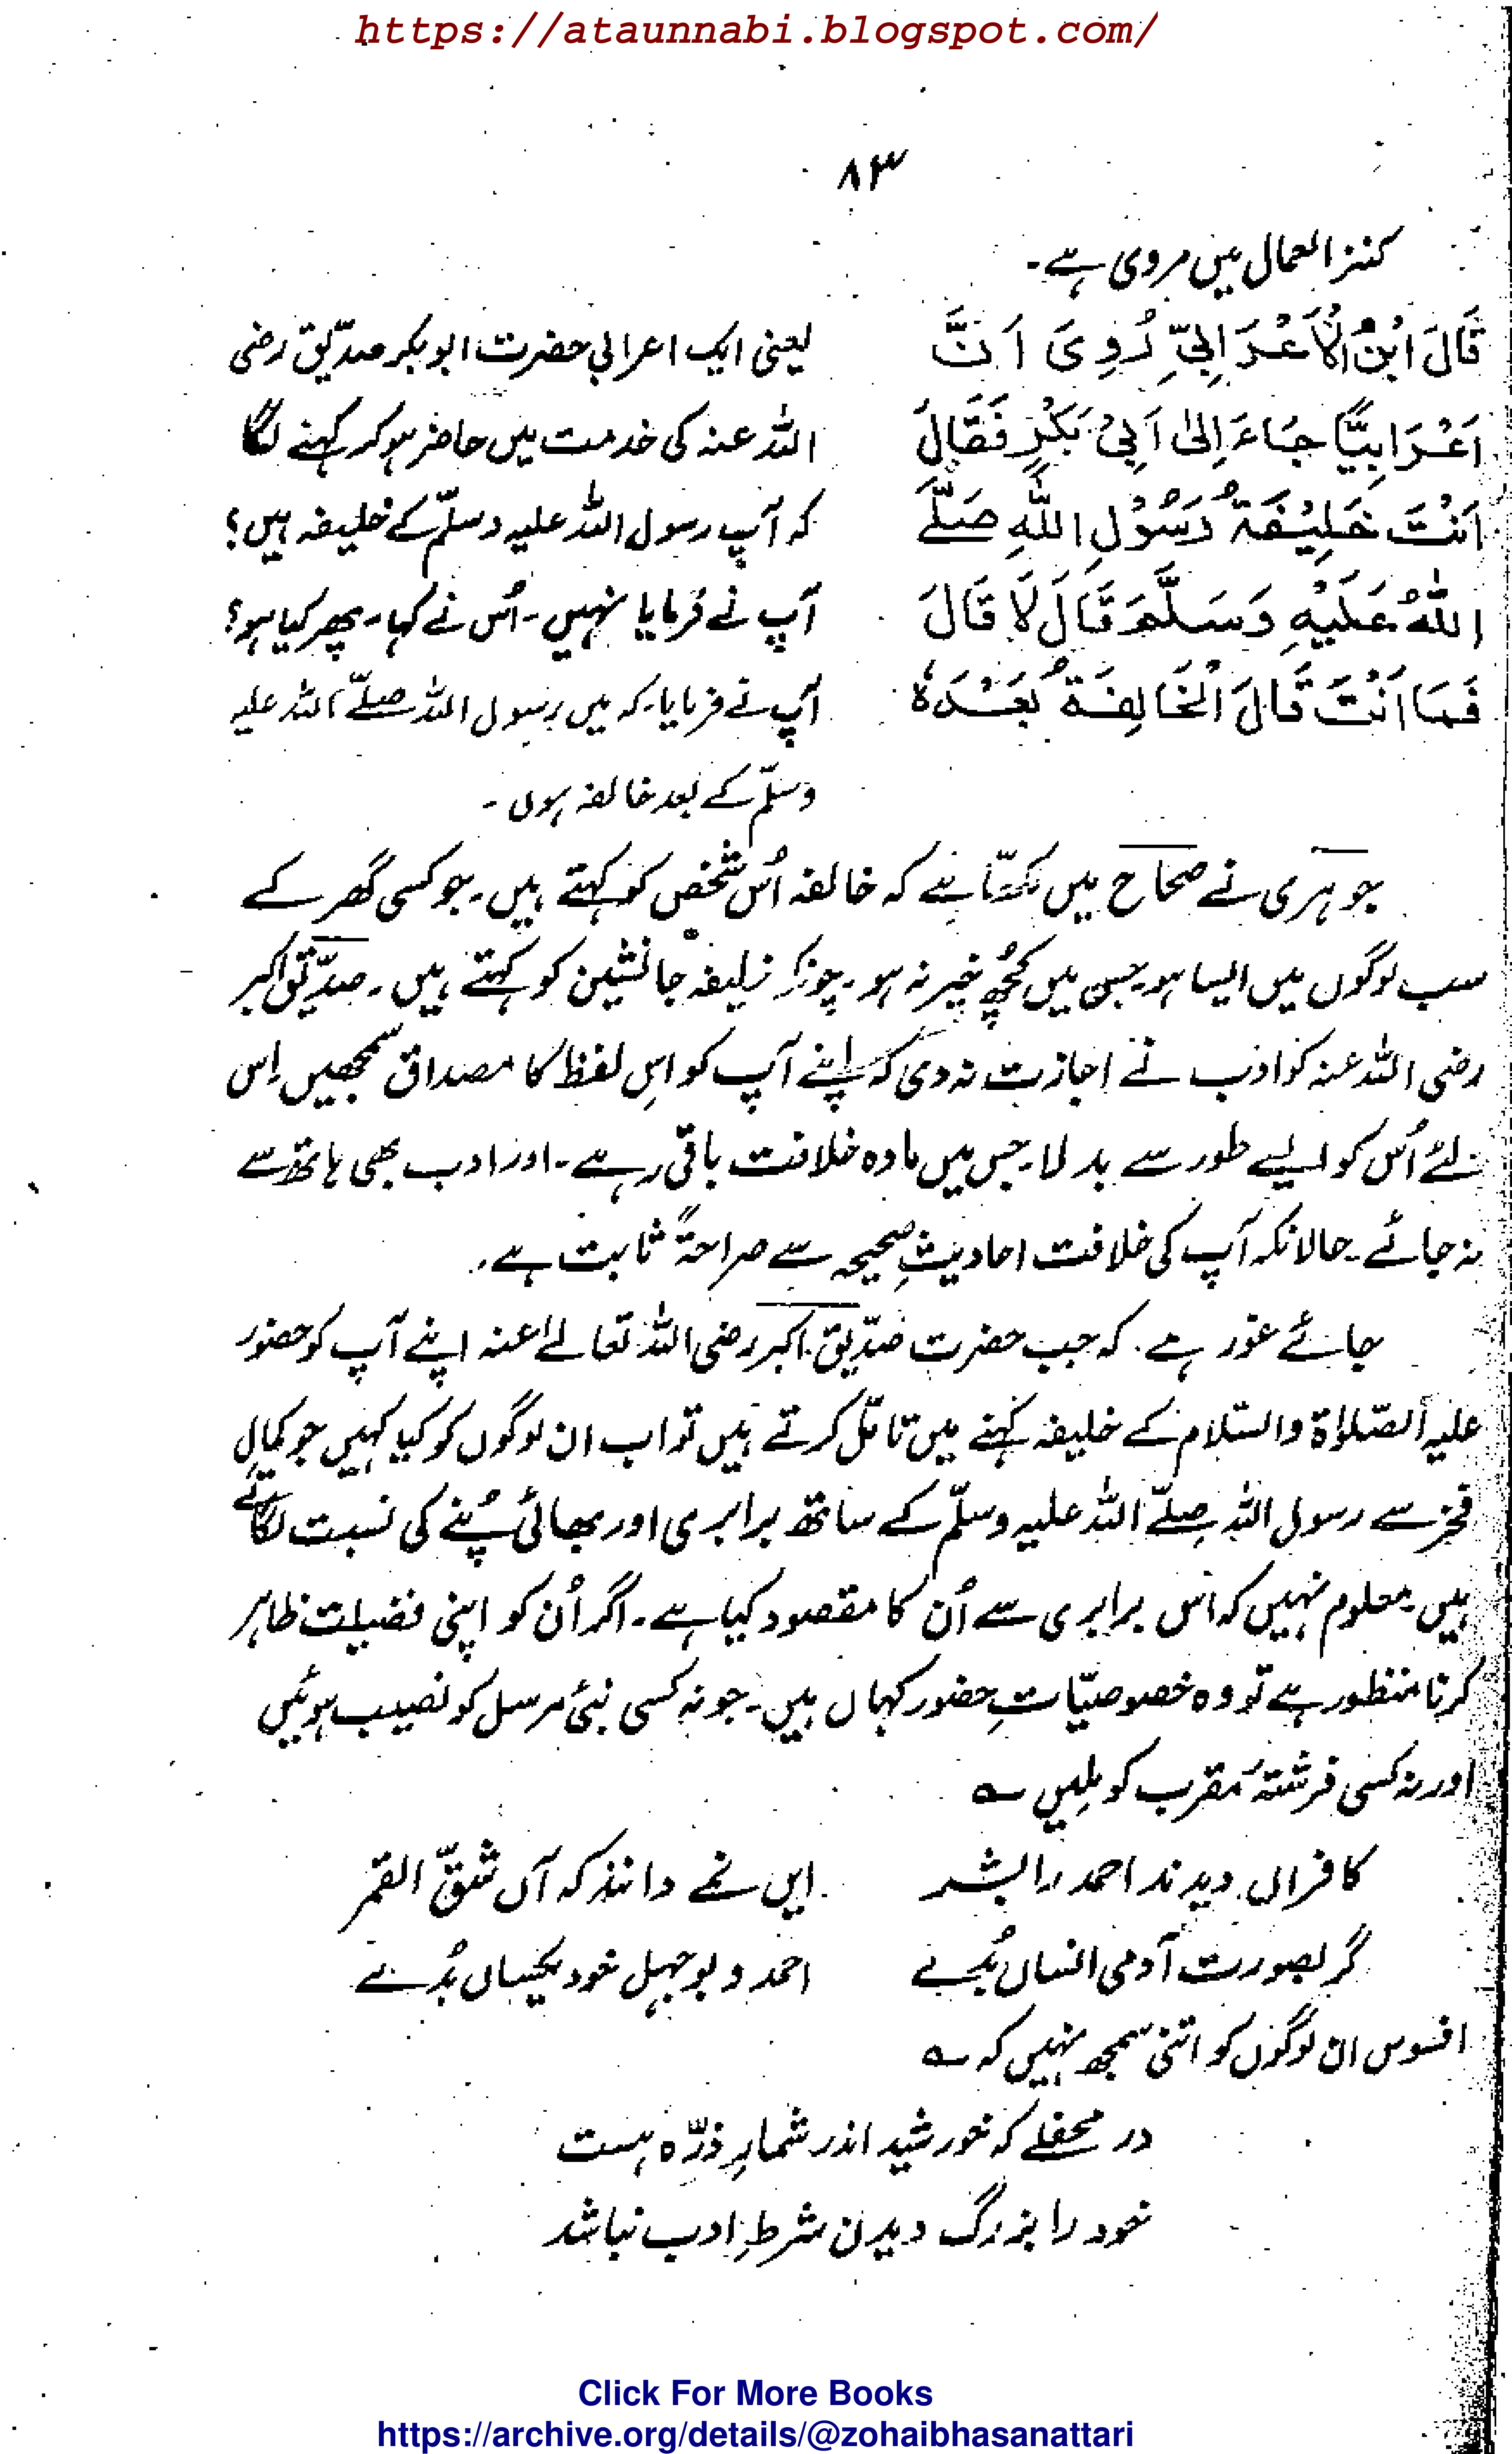 https://ataunnabi.blogspot.com/
۸۳
کنز العمال میں مروی ہے۔
قَالَ ابْنُ الْاَعْرَابِیِّ رُوِیَ اَنَّ
اَعْرَابِیًّا جَاءَ اِلٰی اَبِیْ بَکْرٍ فَقَالَ
اَنْتَ خَلِیْفَۃُ رَسُوْلِ اللّٰہِ صَلَّے
اللّٰہُ عَلَیْہِ وَسَلَّمَ قَالَ لَا قَالَ
فَمَا اَنْتَ قَالَ الْخَالِفَۃُ بَعْدَہٗ
یعنی ایک اعرابی حضرت ابوبکر صدّیق رضی
اللہ عنہ کی خدمت میں حاضر ہو کر کہنے لگا
کہ آپ رسول اللہ علیہ وسلّم کے خلیفہ ہیں؟
آپ نے فرمایا نہیں۔ اُس نے کہا۔ پھر کیا ہو؟
آپ نے فرمایا۔ کہ میں رسول اللہ صلّے اللہ علیہ
وسلّم کے بعد خالفہ ہوں۔
جوہری نے صحاح میں لکھّا ہے کہ خالفہ اُس شخص کو کہتے ہیں۔ جو کسی گھر کے
سب لوگوں میں ایسا ہو۔ جس میں کچُھ خیر نہ ہو۔ چونکہ خلیفہ جانشین کو کہتے ہیں۔ صدّیق اکبر
رضی اللہ عنہ کو ادب نے اجازت نہ دی کہ اپنے آپ کو اِس لفظ کا مصداق سمجھیں اِس
لئے اُس کو ایسے طور سے بدلا۔ جس میں مادہ خلافت باقی رہے۔ اور ادب بھی ہاتھ سے
نہ جائے۔ حالانکہ آپ کی خلافت احادیثِ صحیحہ سے صراحۃً ثابت ہے۔
جائے غور ہے۔ کہ جب حضرت صدّیق اکبر رضی اللہ تعالےٰ عنہ اپنے آپ کو حضور
علیہ الصّلوٰۃ والسّلام کے خلیفہ کہنے میں تامّل کرتے ہیں تو اب ان لوگوں کو کیا کہیں جو کمالِ
فخر سے رسول اللہ صلّے اللہ علیہ وسلّم کے ساتھ برابری اور بھائی پُنے کی نسبت لگاتے
ہیں۔ معلوم نہیں کہ اس برابری سے اُن کا مقصود کیا ہے۔ اگر اُن کو اپنی فضیلت ظاہر
کرنا منظور ہے تو وہ خصوصیّاتِ حضور کہاں ہیں۔ جو نہ کسی نبئ مرسل کو نصیب ہوئیں
اور نہ کسی فرشتۂ مقرب کو مِلیں ؎
کافراں دیدند احمد را بشر	ایں نمے دانند کہ آں شقّ القمر
گر بصورت آدمی انساں بُدے	احمد و بوجہل خود یکساں بُدے
افسوس ان لوگوں کو اتنی سمجھ نہیں کہ ؎
در محفلے کہ خورشید اندر شمارِ ذرّہ ہست
خود را بزرگ دیدن شرطِ ادب نباشد
Click For More Books
https://archive.org/details/@zohaibhasanattari